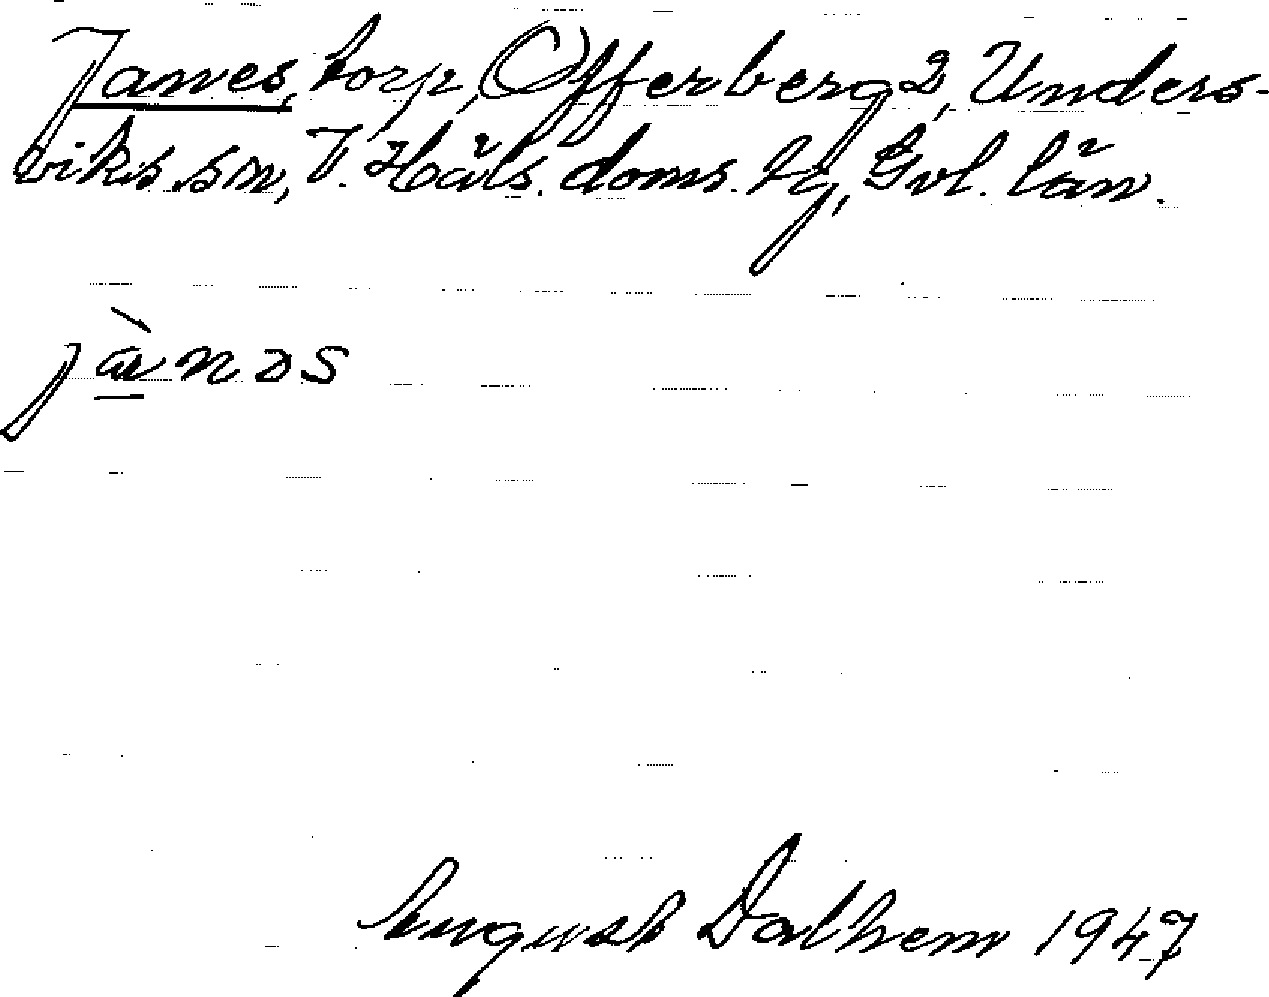 Janes, torp, Offerberg 2, Unders-
viks sn, V. Häls. doms. hg, Gvl. län.
jànəs
August Dalhem 1947